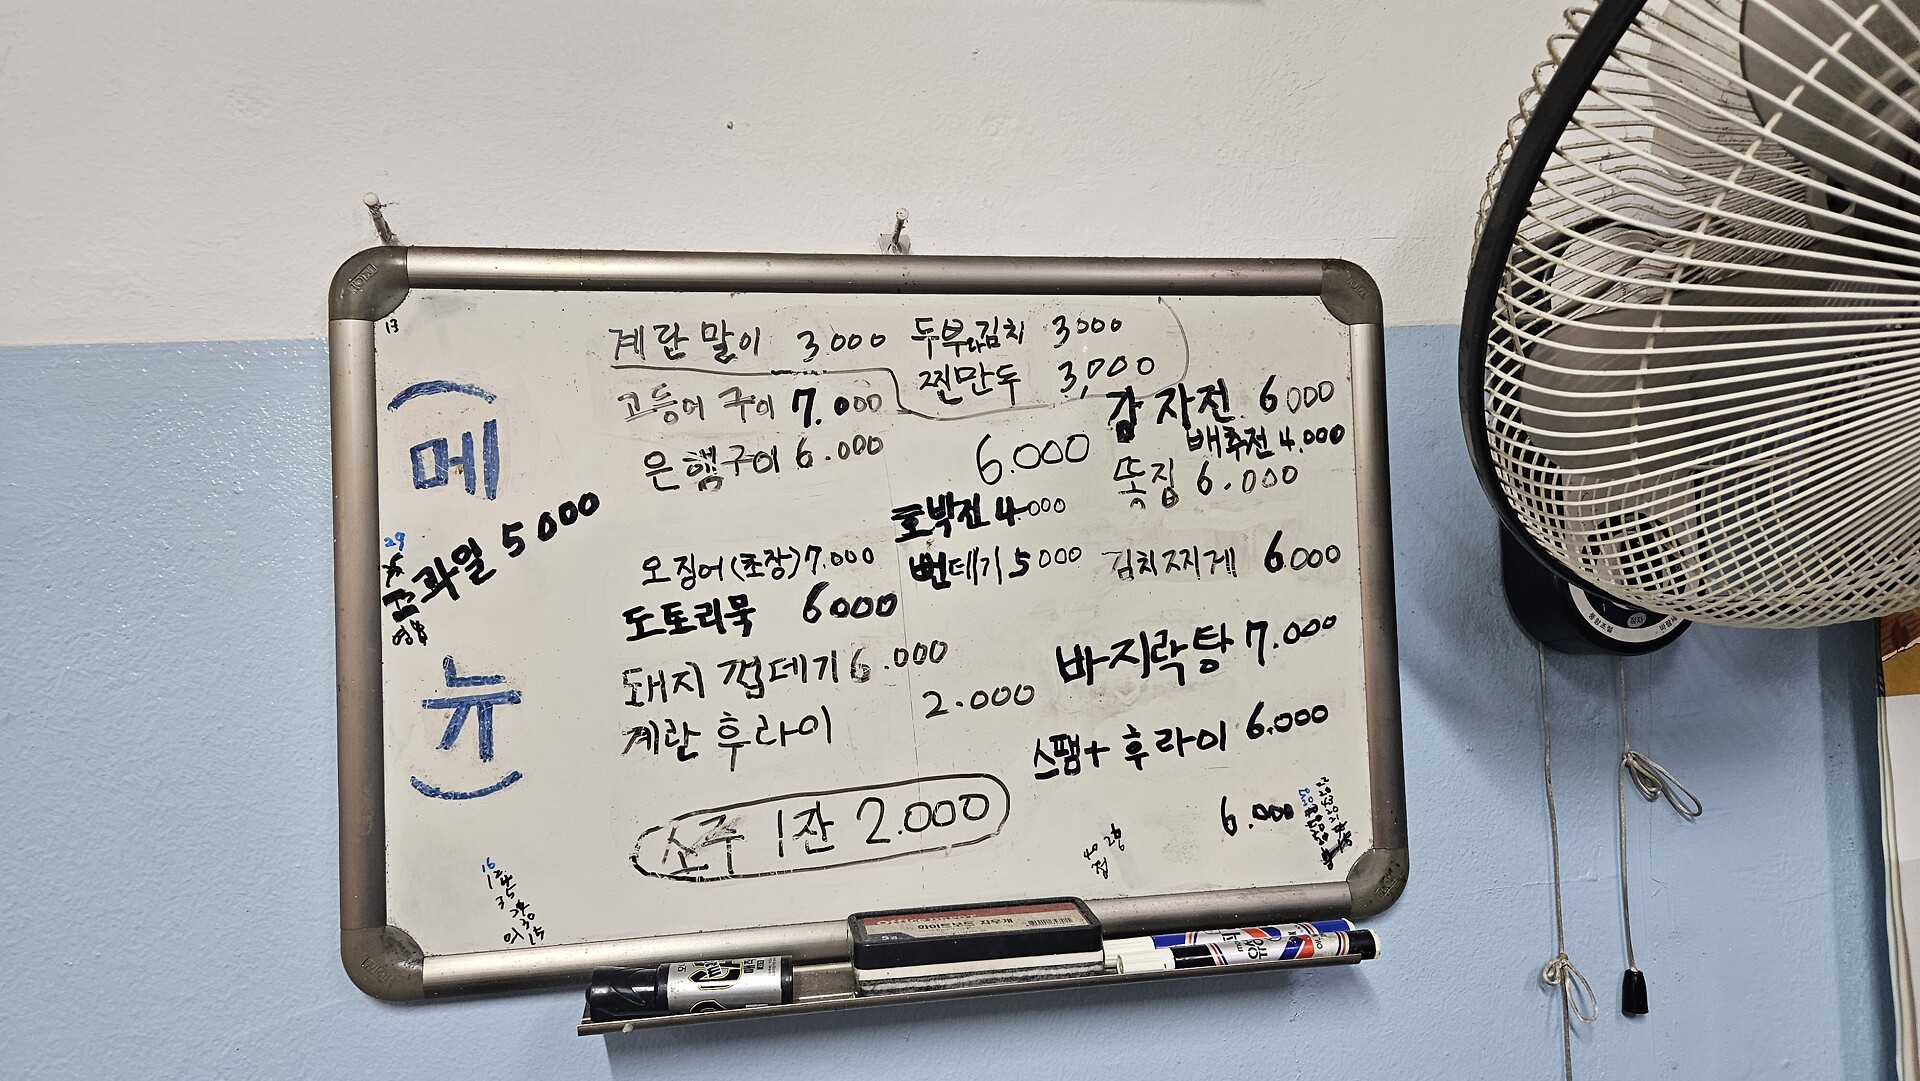 13
계란말이 3000 두부와김치 3000
찐만두 3,000
고등어 구이 7.000
감자전 6000
은행구이 6.000
6.000
배추전 4.000
똥집 6.000
(메뉴)
과일 5000
29
호박전 4.000
오징어(초장)7.000 뻔데기 5000 김치찌게 6.000
도토리묵 6000
바지락탕 7.000
돼지 껍데기 6.000
2.000
계란 후라이
스팸+후라이 6.000
소주 1잔 2.000
6.000
화이트보드 지우개